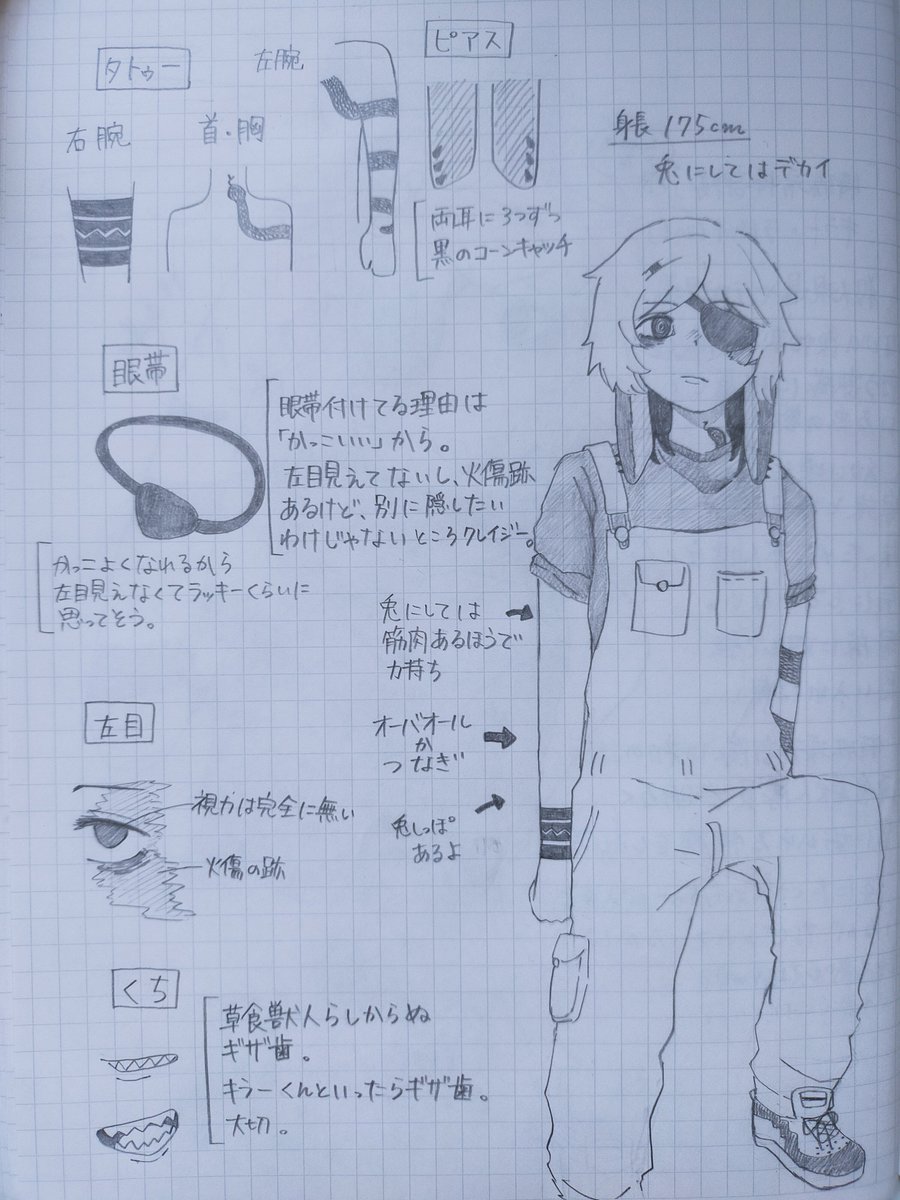 タトゥー
右腕
首・胸
左腕
ピアス
両耳に3つずつ
黒のコーンキャッチ
身長 175cm
兎にしてはデカイ
眼帯
眼帯付けてる理由は
「かっこいい」から。
左目見えてないし、火傷跡
あるけど、別に隠したい
わけじゃないところクレイジー。
かっこよくなれるから
左目見えなくてラッキーくらいに
思ってそう。
兎にしては
筋肉あるほうで
力持ち
オーバオール
か
つなぎ
兎しっぽ
あるよ
左目
視力は完全に無い
火傷の跡
くち
草食獣人らしからぬ
ギザ歯。
キラーくんといったらギザ歯。
大切。